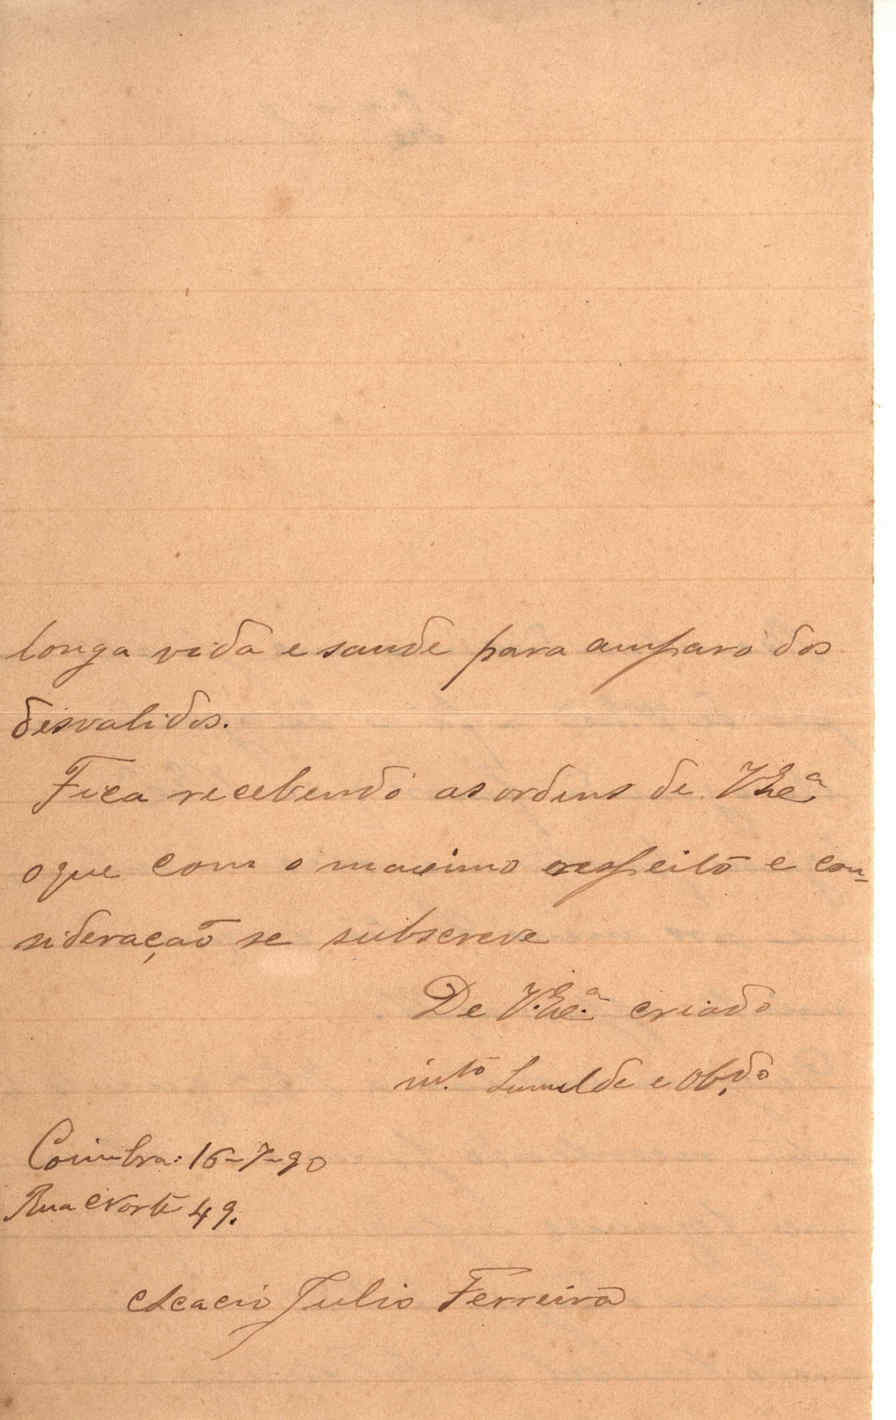 longa vida e saude para amparo dos
desvalidos.
Fica recebendo as ordens de V Exᵃ
o que com o maximo respeito e con-
sideração se subscreve
De V. Exᵃ criado
mᵗᵒ humilde e Obᵈᵒ
Coimbra: 16-7-90
Rua Norte 49.
Acacio Julio Ferreira